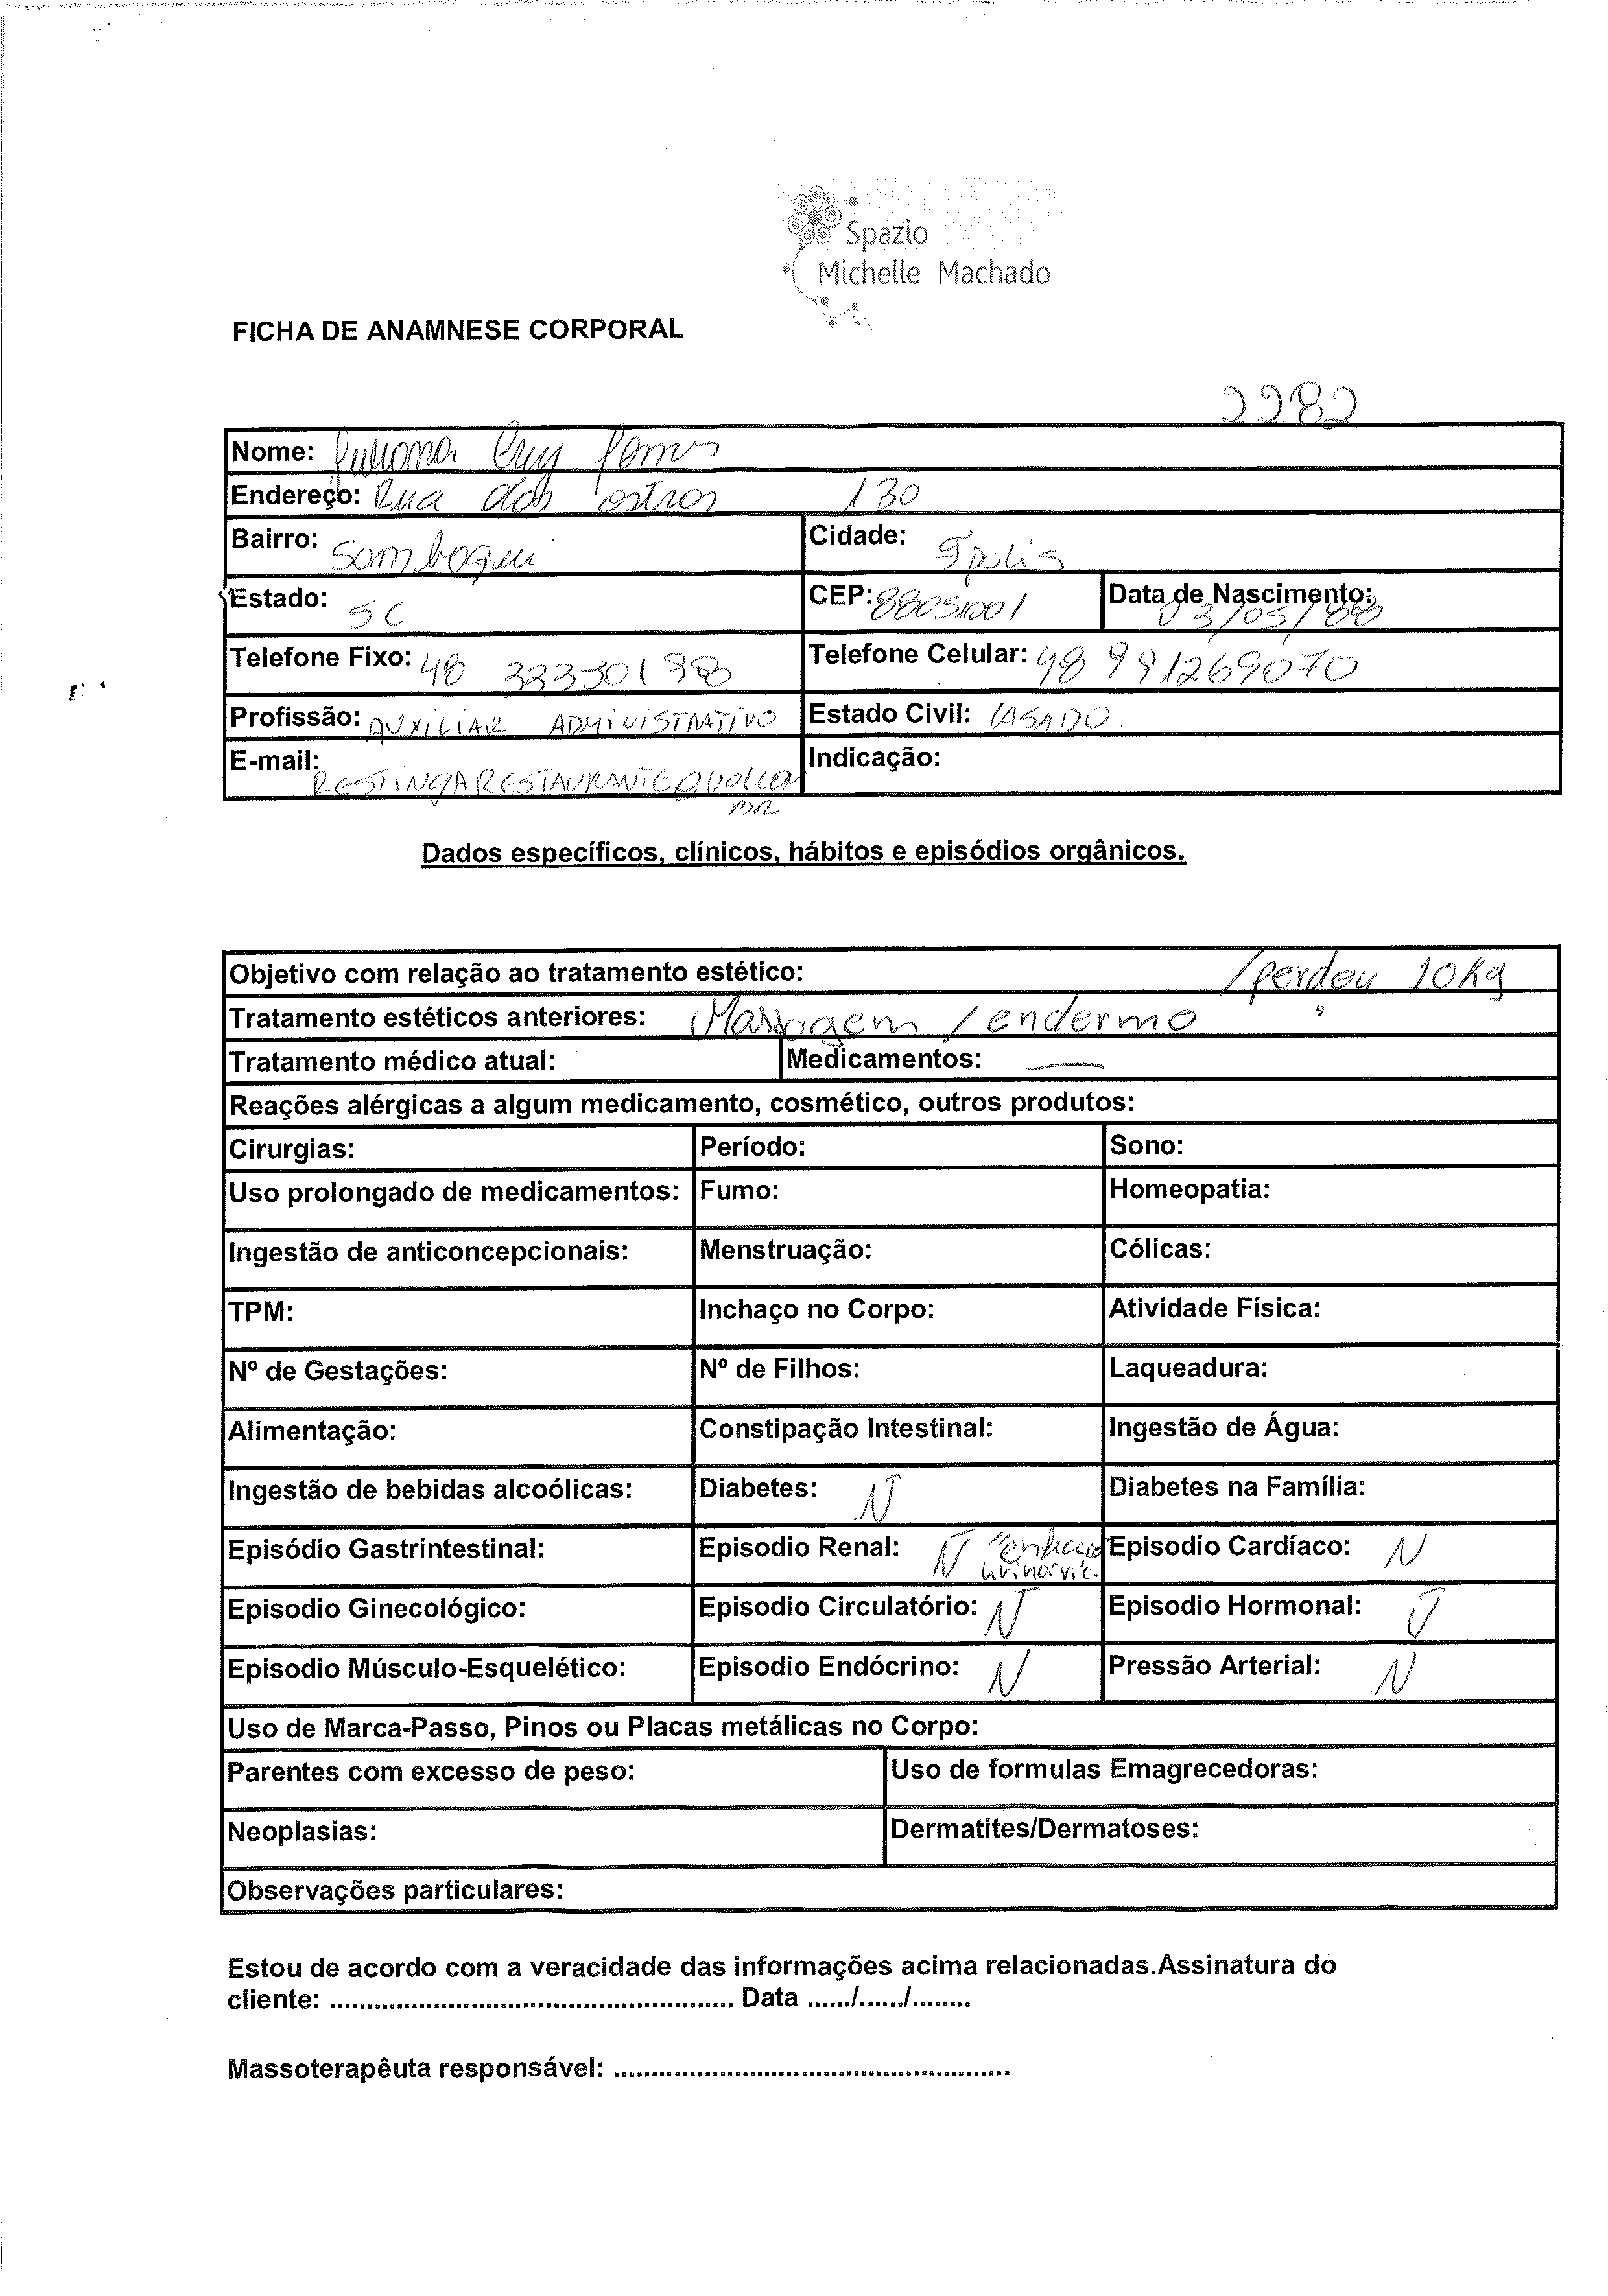 Spazio
Michelle Machado
FICHA DE ANAMNESE CORPORAL
2282
Nome:
Endereço: Rua das ostras 130
Bairro: Sambaqui Cidade: Fpolis
Estado: SC CEP: 88051001 Data de Nascimento: 03/05/88
Telefone Fixo: 48 Telefone Celular: 48 991269070
Profissão: AUXILIAR ADMINISTRATIVO Estado Civil: CASADO
E-mail: Indicação:
RESTINGARESTAURANTE@UOL.COM
BR
Dados específicos, clínicos, hábitos e episódios orgânicos.
Objetivo com relação ao tratamento estético: /perdeu 10Kg
Tratamento estéticos anteriores: Massagem / endermo
Tratamento médico atual: Medicamentos: —
Reações alérgicas a algum medicamento, cosmético, outros produtos:
Cirurgias: Período: Sono:
Uso prolongado de medicamentos: Fumo: Homeopatia:
Ingestão de anticoncepcionais: Menstruação: Cólicas:
TPM: Inchaço no Corpo: Atividade Física:
Nº de Gestações: Nº de Filhos: Laqueadura:
Alimentação: Constipação Intestinal: Ingestão de Água:
Ingestão de bebidas alcoólicas: Diabetes: N Diabetes na Família:
Episódio Gastrintestinal: Episodio Renal: N Episodio Cardíaco: N
Episodio Ginecológico: Episodio Circulatório: N Episodio Hormonal:
Episodio Músculo-Esquelético: Episodio Endócrino: N Pressão Arterial: N
Uso de Marca-Passo, Pinos ou Placas metálicas no Corpo:
Parentes com excesso de peso: Uso de formulas Emagrecedoras:
Neoplasias: Dermatites/Dermatoses:
Observações particulares:
Estou de acordo com a veracidade das informações acima relacionadas.Assinatura do
cliente: ...................................................... Data ....../....../........
Massoterapêuta responsável: .....................................................